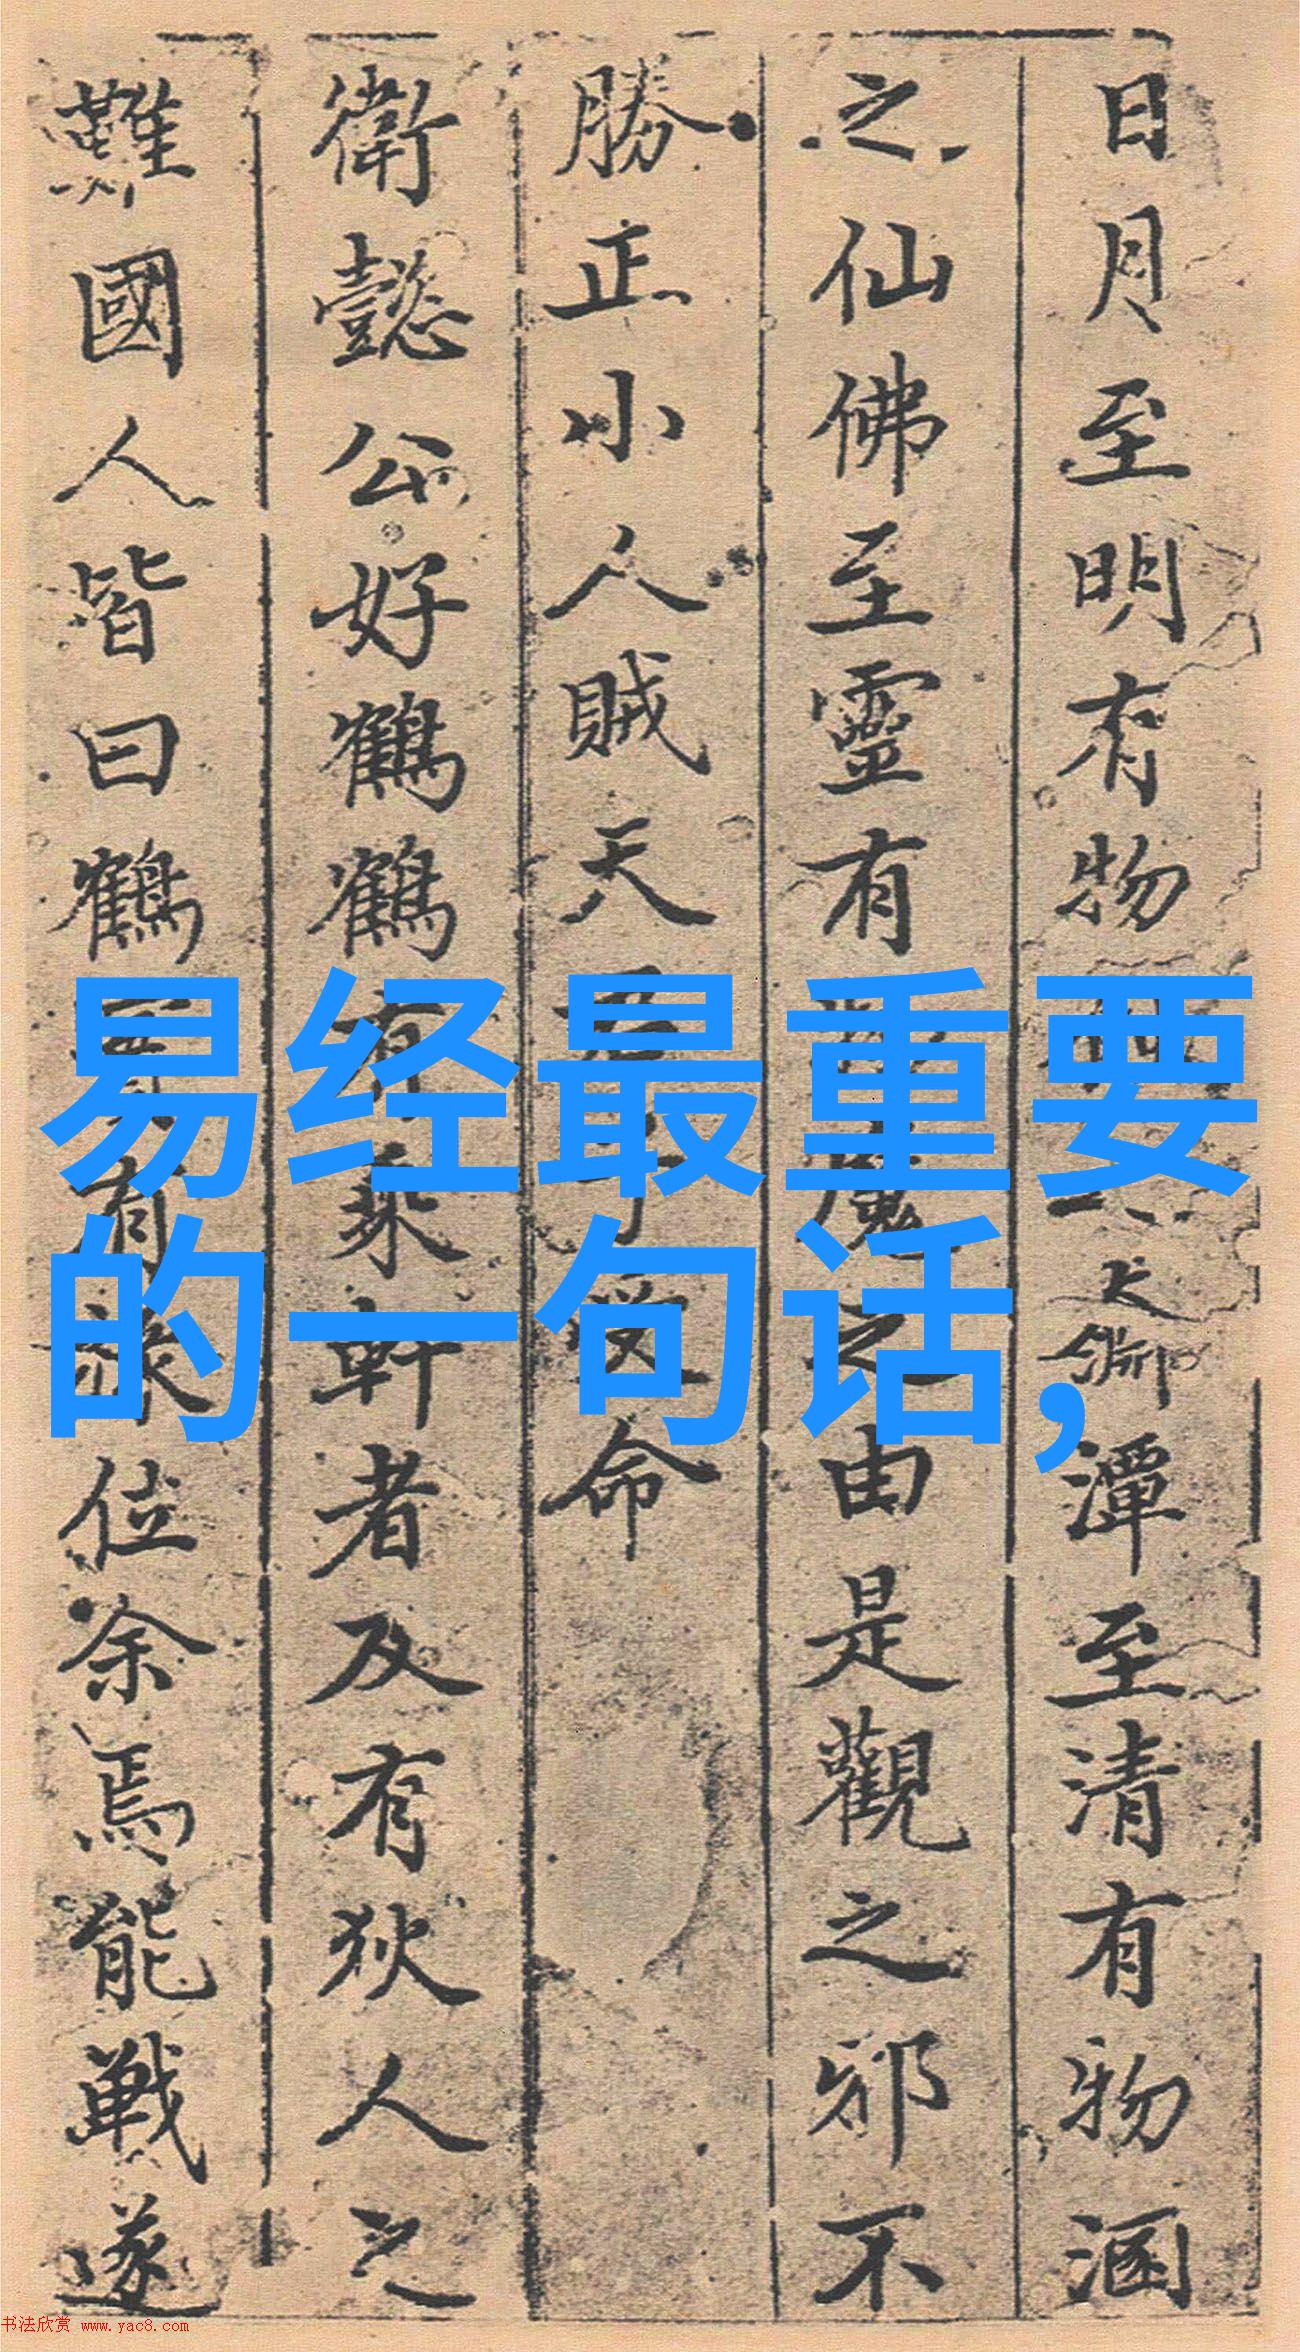 日月至明有物
大淵潭至清有物涵
之仙佛至靈有魔之由是觀之邪不
勝正小人賊天受命
衛懿公好鶴鶴有乘軒者及有狄人之
難國人皆曰鶴有祿位余焉能戰遂
易经最重要
的一句话,
书法欣赏 www.yac8.com